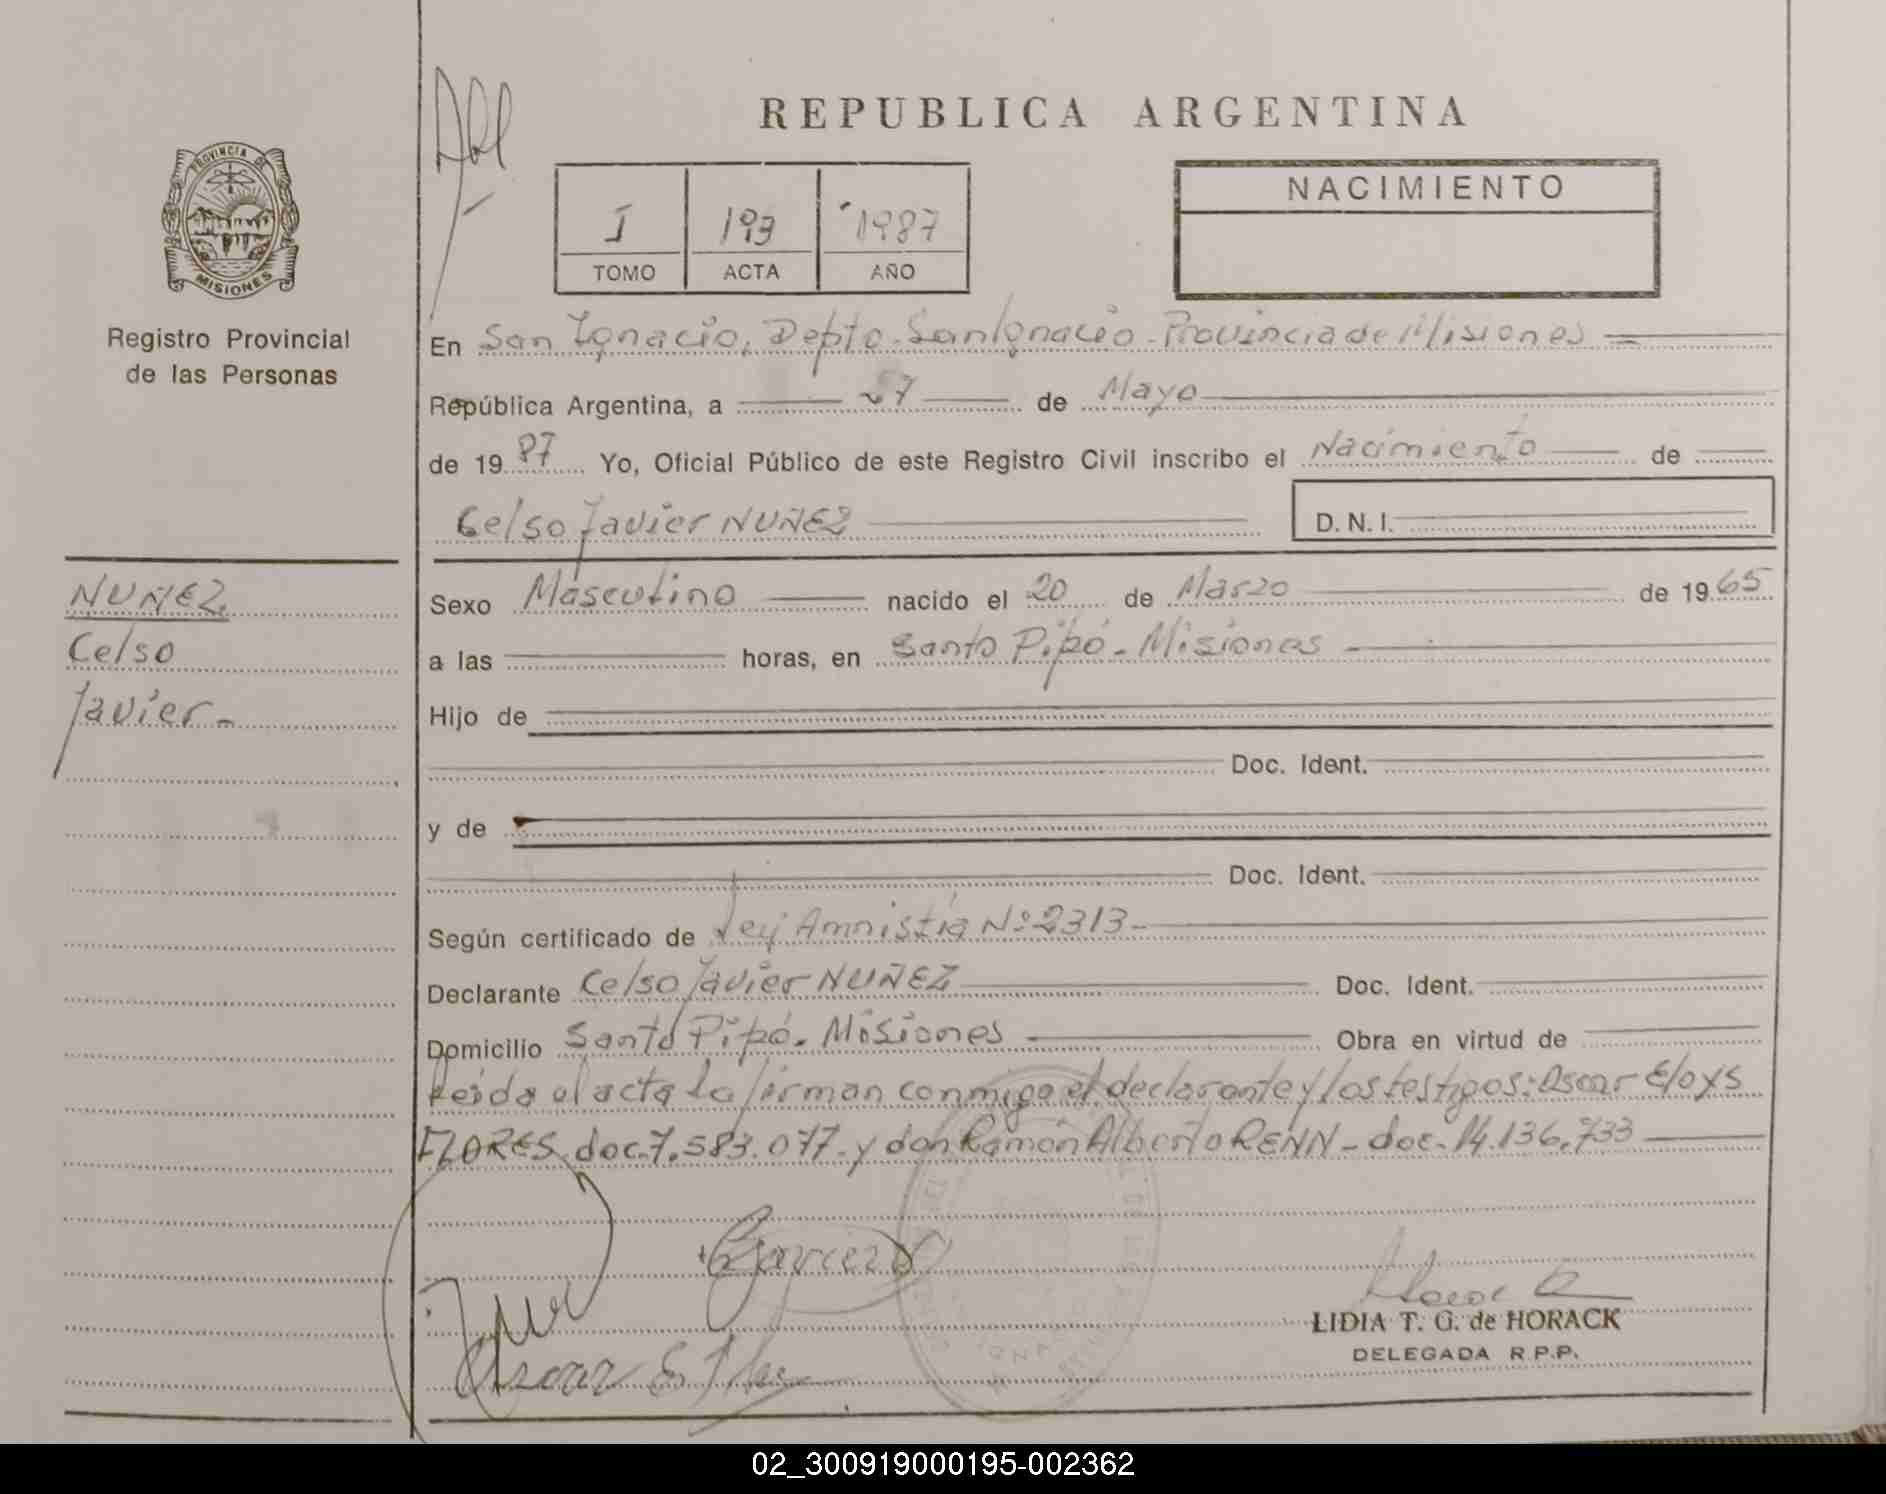 REPUBLICA ARGENTINA
PROVINCIA DE
MISIONES
Registro Provincial
de las Personas
I 193 1987
TOMO ACTA AÑO
NACIMIENTO
En San Ignacio, Depto. San Ignacio - Provincia de Misiones
República Argentina, a 27 de Mayo
de 1987 Yo, Oficial Público de este Registro Civil inscribo el Nacimiento de
Celso Javier NUÑEZ D. N. I.
NUÑEZ
Celso
Javier.-
Sexo Masculino nacido el 20 de Marzo de 1965
a las horas, en Santo Pipó - Misiones
Hijo de
Doc. Ident.
y de
Doc. Ident.
Según certificado de Ley Amnistía Nº 2313-
Declarante Celso Javier NUÑEZ Doc. Ident.
Domicilio Santo Pipó. Misiones Obra en virtud de
Leida el acta la firman conmigo el declarante y los testigos: Oscar Eloys
FLORES. doc. 7.583.077. y don Ramón Alberto RENN - doc. 14.136.733
LIDIA T. G. de HORACK
DELEGADA R.P.P.
02_300919000195-002362